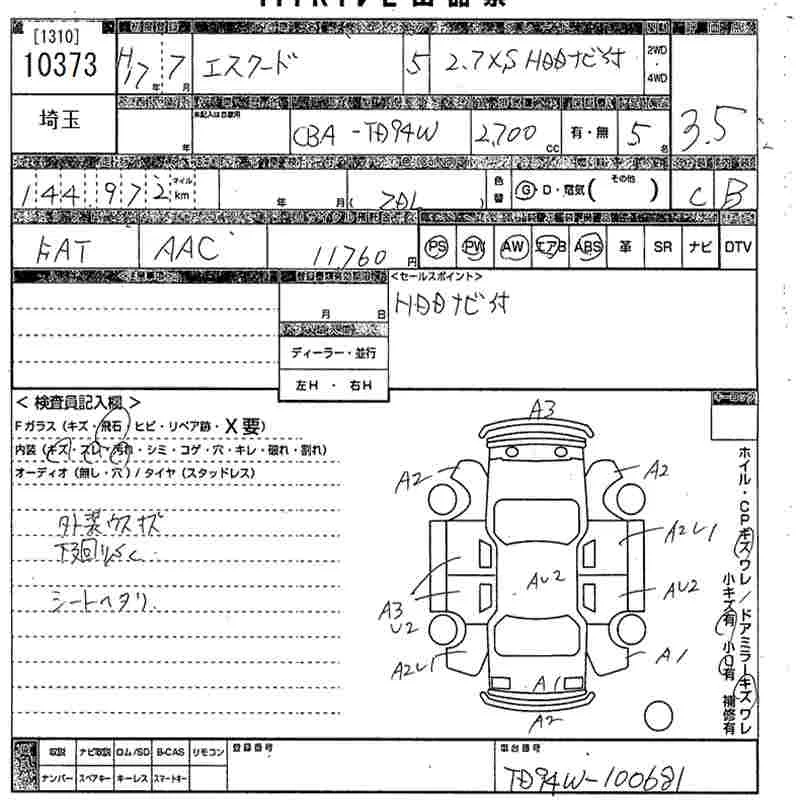 [1310]
10373
H17年 7月
エスクード
5
2.7XS HDDナビ付
2WD
・
4WD
埼玉
年
CBA-TD94W
2,700 CC
有・無
5名
3.5
144,972
マイル
km
年 月(
ZDL
)
色替
G・D・電気(その他 )
C
B
FAT
AAC
11760円
PS
PW
AW
エアB
ABS
革
SR
ナビ
DTV
<セールスポイント>
HDDナビ付
月 日
ディーラー・並行
左H ・ 右H
<検査員記入欄>
Fガラス(キズ・飛石・ヒビ・リペア跡・X要)
内装(キズ・スレ・汚れ・シミ・コゲ・穴・キレ・破れ・割れ)
オーディオ(無し・穴)/タイヤ(スタッドレス)
外装ウスキズ
下回りサビ
シートヘタリ
A3
A2
A2
A2U1
AU2
AU2
A3
U2
A2U1
A1
A1
A2
キーロック
ホイル・CPキズワレ/ドアミラーキズワレ
小キズ有 小凹有 補修有
取説
ナビ取説
ロム/SD
B-CAS
リモコン
ナンバー
スペアキー
キーレス
スマートキー
登録番号
車台番号
TD94W-100681